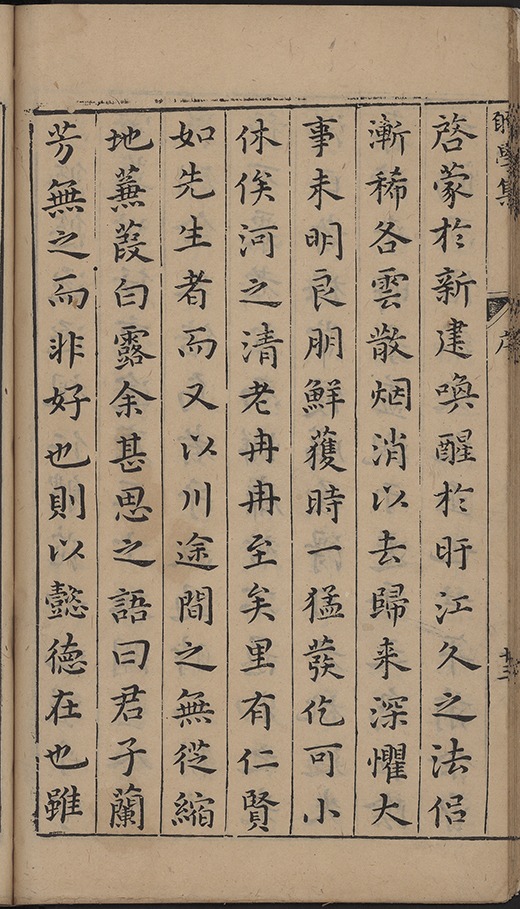 啓蒙於新建喚醒於盱江久之法侣
漸稀各雲散烟消以去歸来深懼大
事未明良朋鮮獲時一猛發仡可小
休俟河之清老冉冉至矣里有仁賢
如先生者而又以川途間之無從縮
地蒹葭白露余甚思之語曰君子蘭
芳無之而非好也則以懿德在也雖